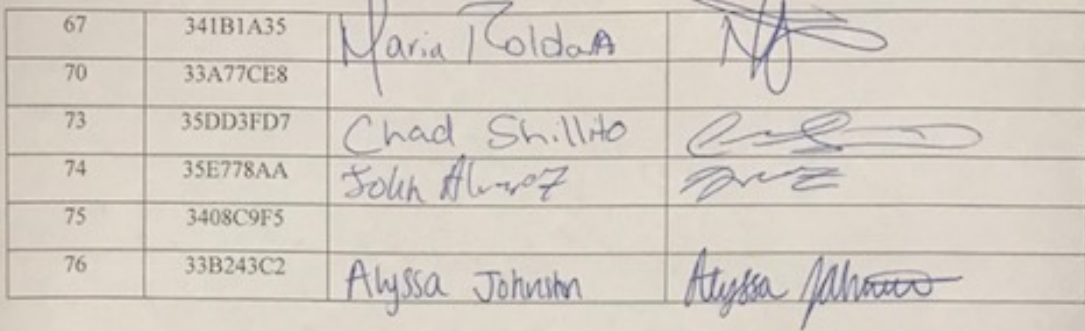 67 341B1A35 Maria Roldan
70 33A77CE8
73 35DD3FD7 Chad Shillito
74 35E778AA John Alvarez
75 3408C9F5
76 33B243C2 Alyssa Johnston Alyssa